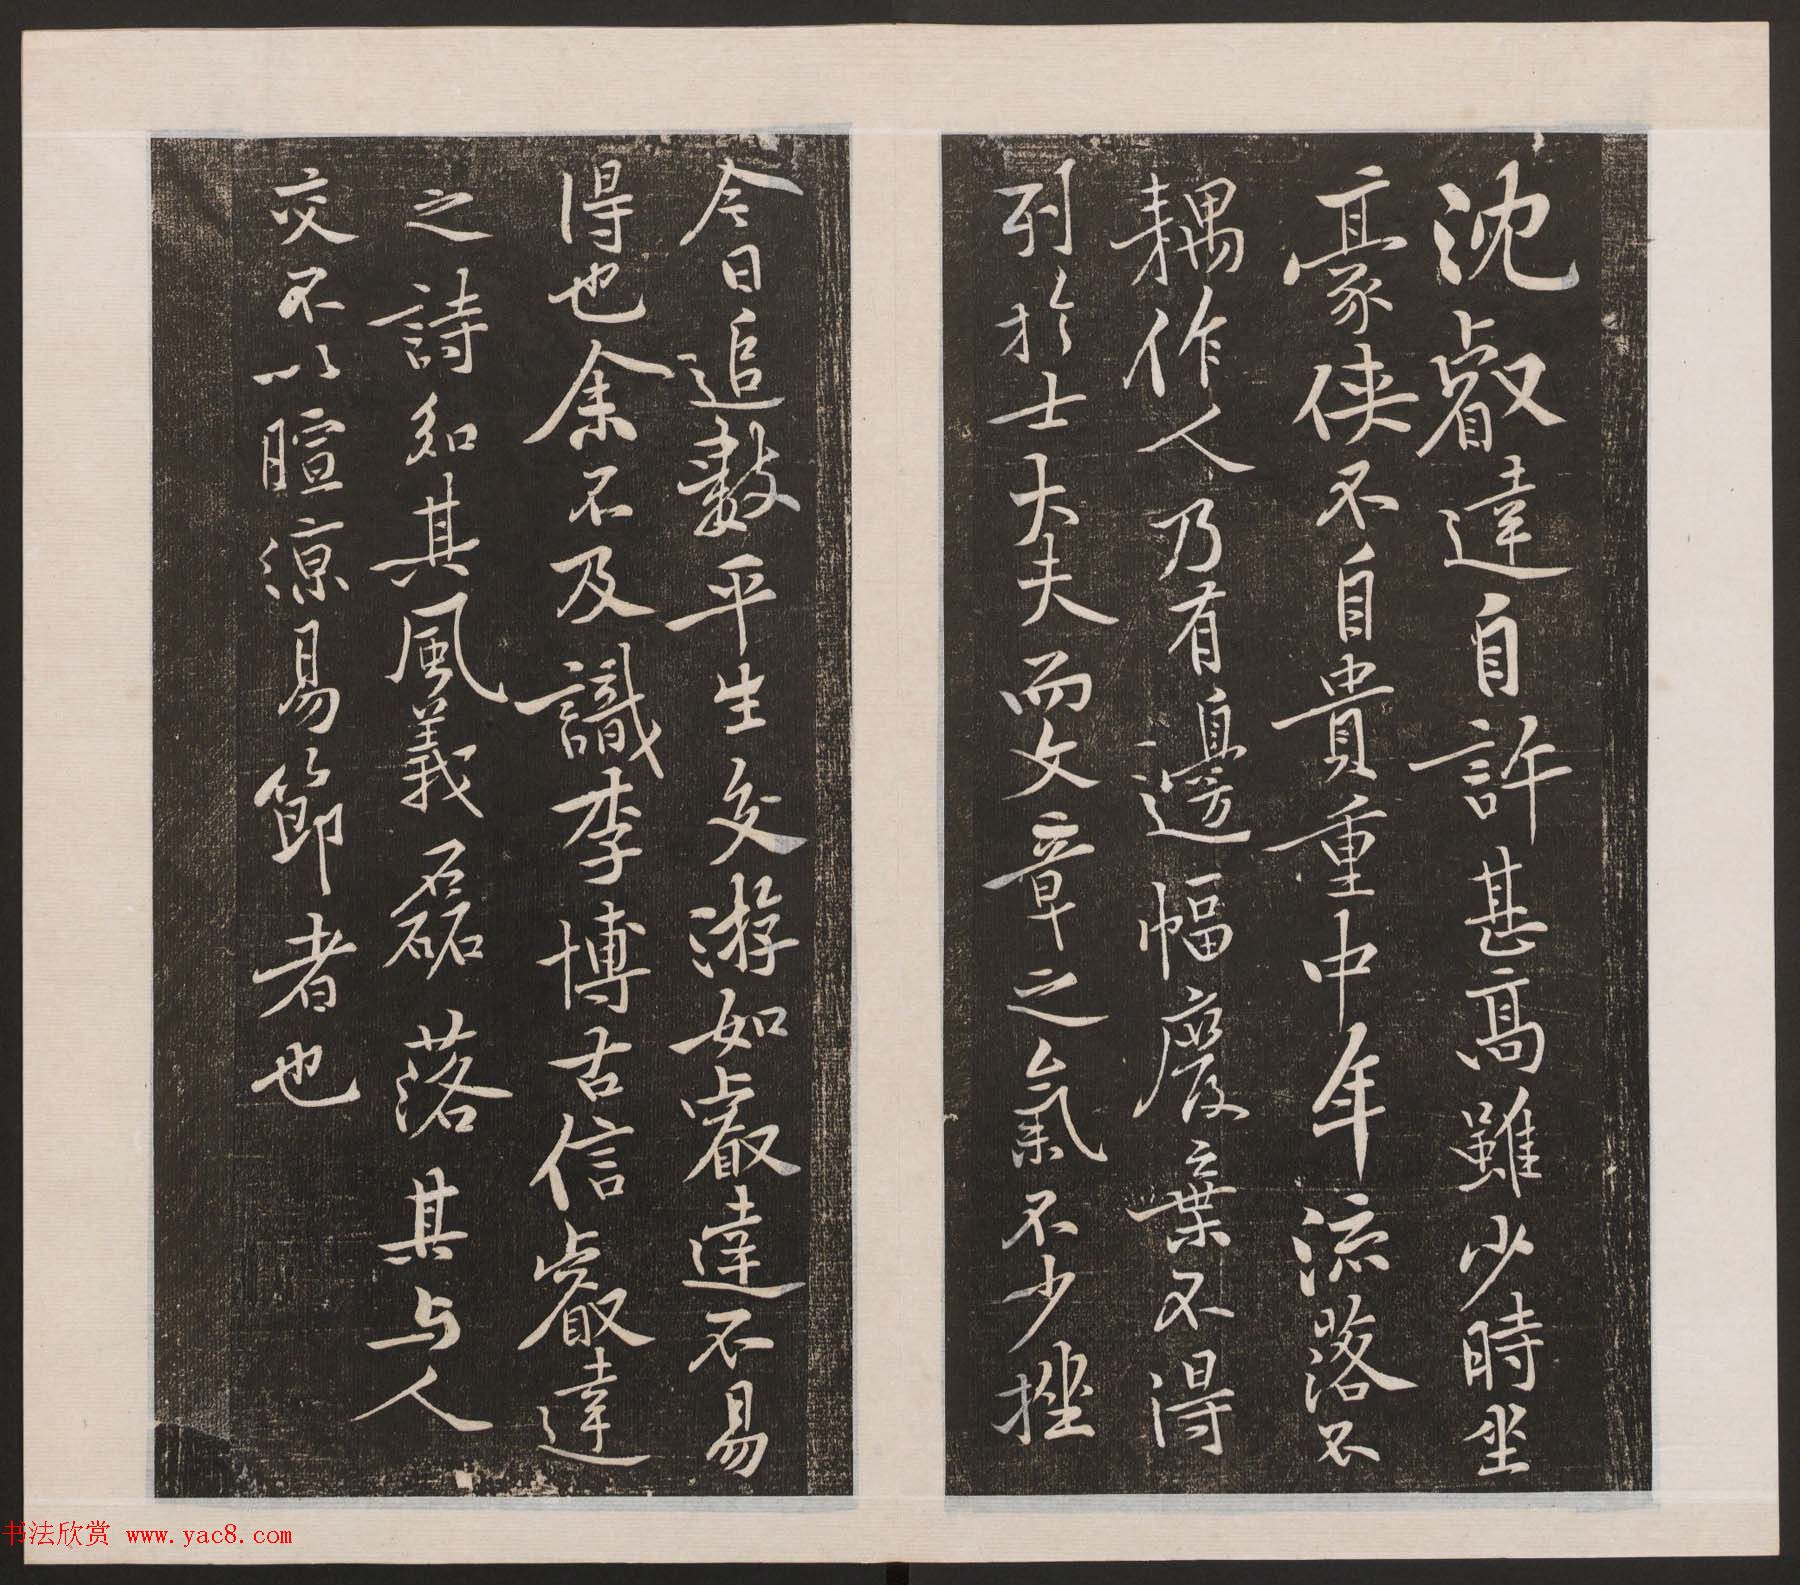 沈叡達自許甚高雖少時坐
豪俠不自貴重中年流落不
耦作人乃有邊幅廢棄不得
列於士大夫而文章之氣不少挫
今日追數平生交游如叡達不易
得也余不及識李博古信叡達
之詩知其風義磊落其与人
交不以暄涼易節者也
书法欣赏 www.yac8.com